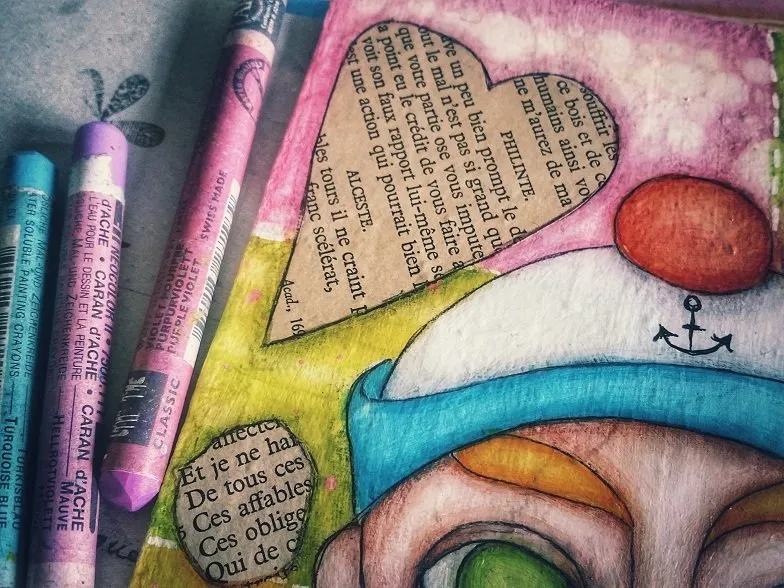 TURQUOISE BLUE
TÜRKISBLAU
WATER SOLUBLE PAINTING CRAYONS
d'ACHE • CARAN d'ACHE • CARAN d'ACHE
L'EAU POUR LE DESSIN ET LA PEINTURE
MAUVE
HELLROTVIOLETT
CLASSIC
PURPLE VIOLET
SWISS MADE
souffrir les
ce bois et de ce
humains ainsi vo
ne m'aurez de ma
PHILINTE.
ve un peu bien prompt le d
out le mal n'est pas si grand qu
que votre partie ose vous impute
a point eu le crédit de vous faire a
voit son faux rapport lui-même s
est une action qui pourrait bien
ALCESTE.
les tours il ne craint
franc scélérat,
Acad., 16
affecter
Et je ne hai
De tous ces
Ces affables
Ces oblige
Qui de c